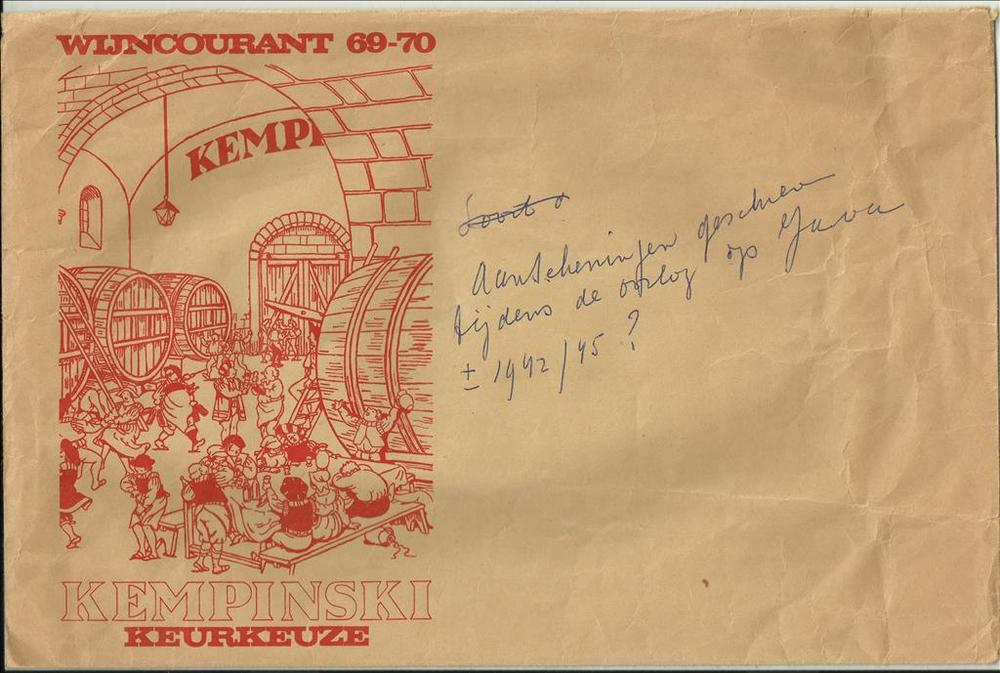 WIJNCOURANT 69-70
KEMPI
KEMPINSKI
KEURKEUZE
Aantekeningen geschreven
tijdens de oorlog op Java
± 1942/45 ?